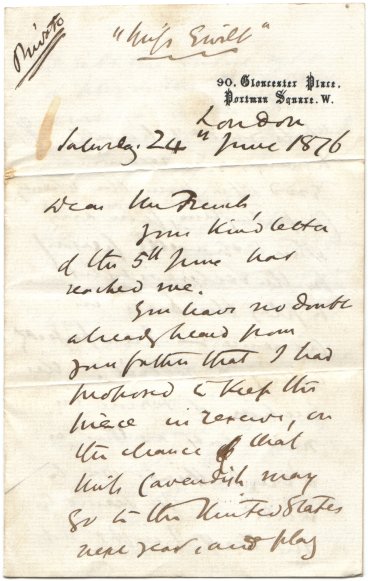 Private
"Miss Gwilt"
90. Gloucester Place.
Portman Square. W.
London
Saturday. 24th June 1876
Dear Mr French
Your kind letter
of the 5th June has
reached me.
You have no doubt
already heard from
your father that I had
proposed to keep this
piece in reserve, on
the chance that
Miss Cavendish may
go to the United States
next year, and play